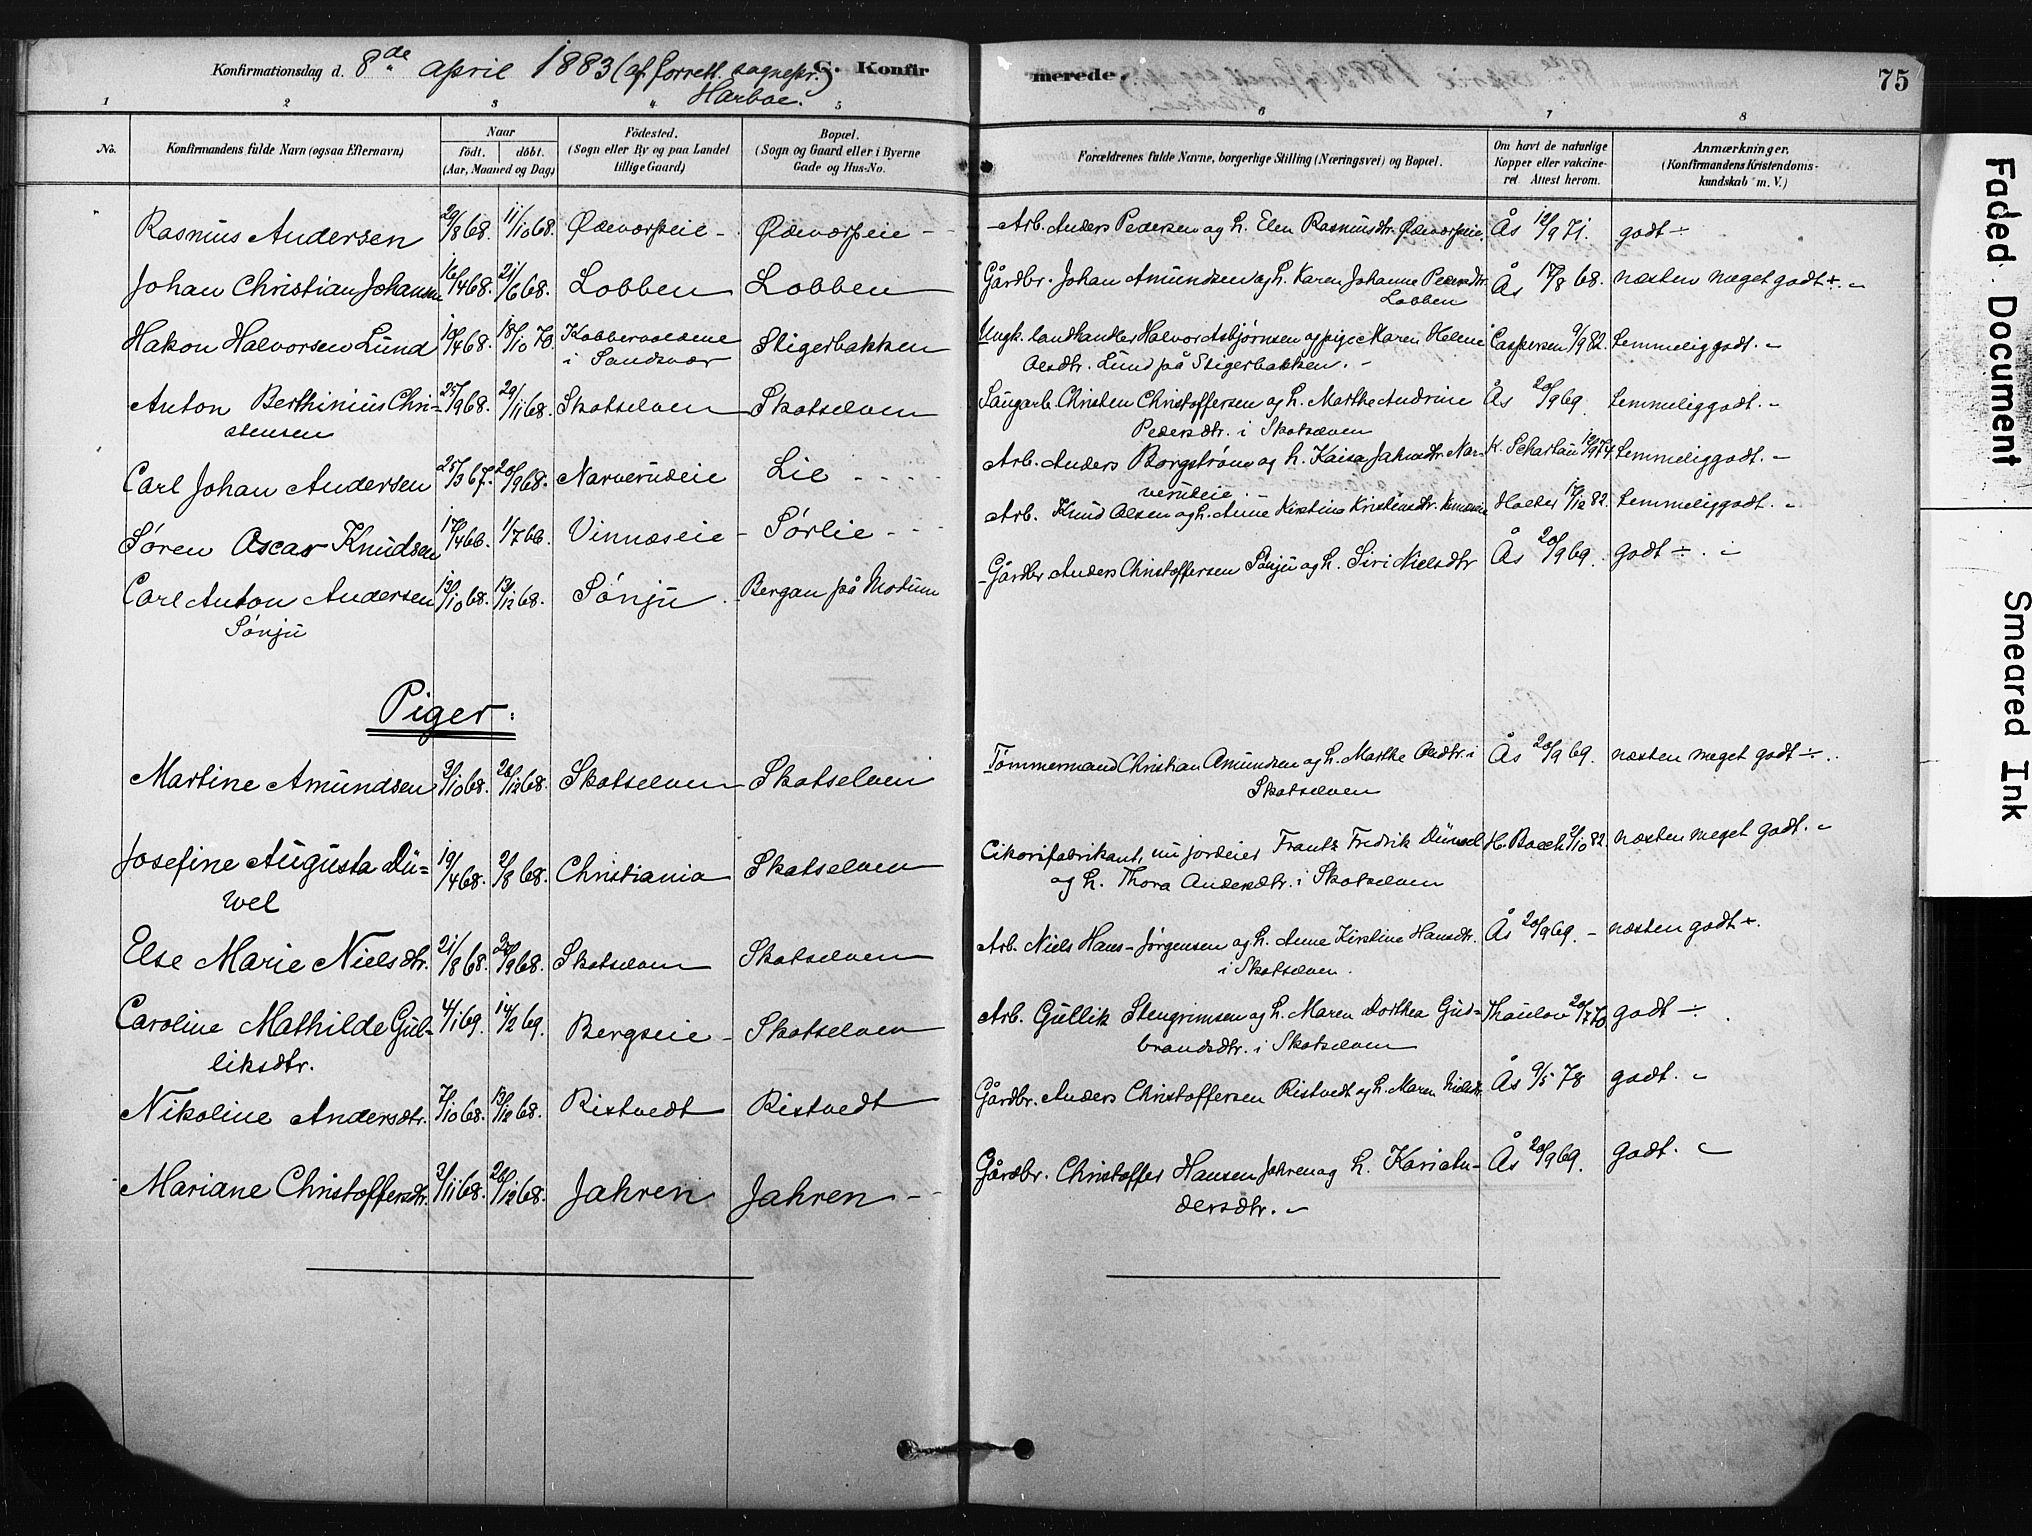 Konfirmationsdag d. 8de april 1883 (af forrett. sognepr. C. Konfirmerede. 75
Harboe.)
1 2 3 4 5 6 7 8
No. Konfirmandens fulde Navn (ogsaa Efternavn) Naar født. døbt. (Aar, Maaned og Dag) Födested. (Sogn eller By og paa Landet tillige Gaard) Bopæl. (Sogn og Gaard eller i Byerne Gade og Hus-No. Forældrenes fulde Navne, borgerlige Stilling (Næringsvei) og Bopæl. Om havt de naturlige Kopper eller vakcineret Attest herom. Anmærkninger. (Konfirmandens Kristendomskundskab m. V.)
Rasmus Andersen 29/8 68. 11/10 68. Ødevarpeie - Ødevarpeie - Arb. Anders Pedersen og h. Elen Rasmusdtr. Ødevarpeie. Ås 12/9 71. godt ÷
Johan Christian Johansen 16/4 68. 21/6 68. Lobben Lobben Gårdbr. Johan Amundsen og h. Karen Johanne Pedersdtr. Ås 17/8 68. næsten meget godt +. -
Lobben
Hakon Halvorsen Lund 10/4 68. 18/10 70. Kobbervoldene Stigerbakken Ungk. landhandler Halvor Asbjørnsen og pige Maren Helene Caspersen 9/9 82. temmelig godt. -
i Sandsvær Olsdtr. Lund på Stigerbakken. -
Anton Berthinius Chri- 25/9 68. 29/11 68. Skotselven Skotselven Saugarb. Christen Christoffersen og h. Marthe Andrine Ås 20/9 69. temmelig godt. -
stensen Pedersdtr. i Skotselven
Carl Johan Andersen 25/3 67. 20/9 68. Narverudeie Lie - - - Arb. Anders Borgstrøm og h. Kaisa Jahnsdtr. Nar- K. Schartau 19/9 74 temmelig godt. -
verudeie.
Søren Oscar Knudsen 17/4 66. 1/7 66. Vinnæseie - Sørlie - - Arb. Knud Olsen og h. Anne Kirstine Kristensdtr. Holter 17/12 82. temmelig godt. -
Carl Anton Andersen 12/10 68. 13/12 68. Sønju - Bergan på Modum - Gårdbr. Anders Christoffersen Sønju og h. Siri Nielsdtr Ås 20/9 69. godt ÷. -
Sønju
Piger:
Martine Amundsen 3/10 68. 26/12 68. Skotselven Skotselven Tømmermand Christian Amundsen og h. Marthe Olsdtr. i Ås 20/9 69. næsten meget godt ÷..
Skotselven
Josefine Augusta Dü- 19/4 68. 2/8 68. Christiania Skotselven Cikorifabrikant, nu jordeier Frantz Fredrik Düwel H. Boeck 2/10 82. næsten meget godt. -
wel og h. Thora Andersdtr. i Skotselven
Else Marie Nielsdtr. 21/8 68. 20/9 68. Skotselven Skotselven Arb. Niels Hans-Jørgensen og h. Anne Kirstine Hansdtr. Ås 20/9 69. - næsten godt +.
i Skotselven.
Caroline Mathilde Gul- 4/1 69. 14/2 69. Bergseie - Skotselven Arb. Gullik Stengrimsen og h. Maren Dorthea Gud- Thaulow 20/7 70 godt ÷.
liksdtr. brandsdtr. i Skotselven
Nikoline Andersdtr. 7/10 68. 13/12 68. Ristvedt Ristvedt Gårdbr. Anders Christoffersen Ristvedt og h. Maren Nielsdtr. Ås 9/5 78 godt. -
Mariane Christoffersdtr. 3/11 68. 26/12 68. Jahren Jahren - - Gårdbr. Christoffer Hansen Jahren og h. Kari An- Ås 20/9 69. godt. -
dersdtr. -
Faded Document
Smeared Ink